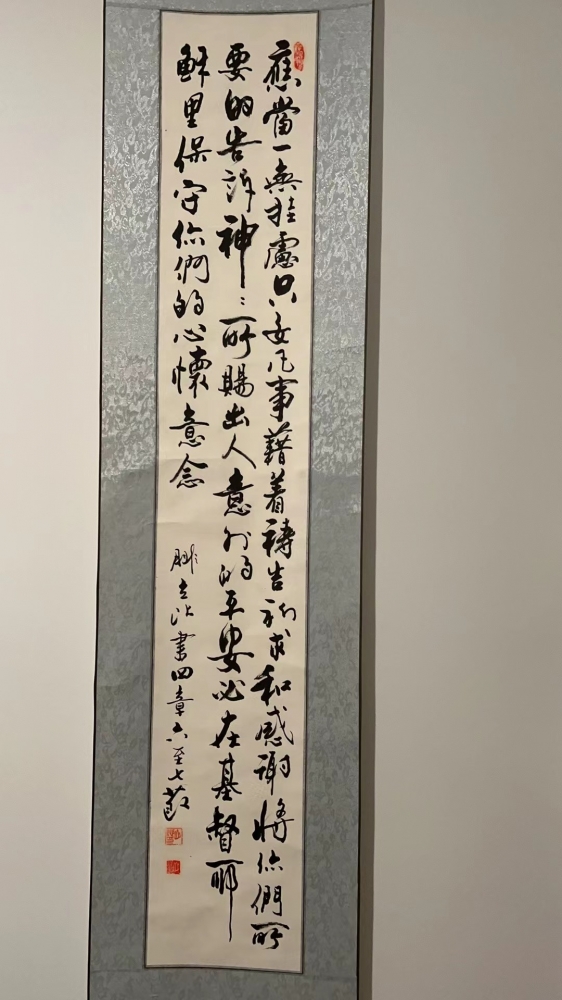 應當一無挂慮只要凡事藉着禱告祈求和感謝將你們所
要的告訴神〻所賜出人意外的平安必在基督耶
穌里保守你們的心懷意念
腓立比書四章六至七節